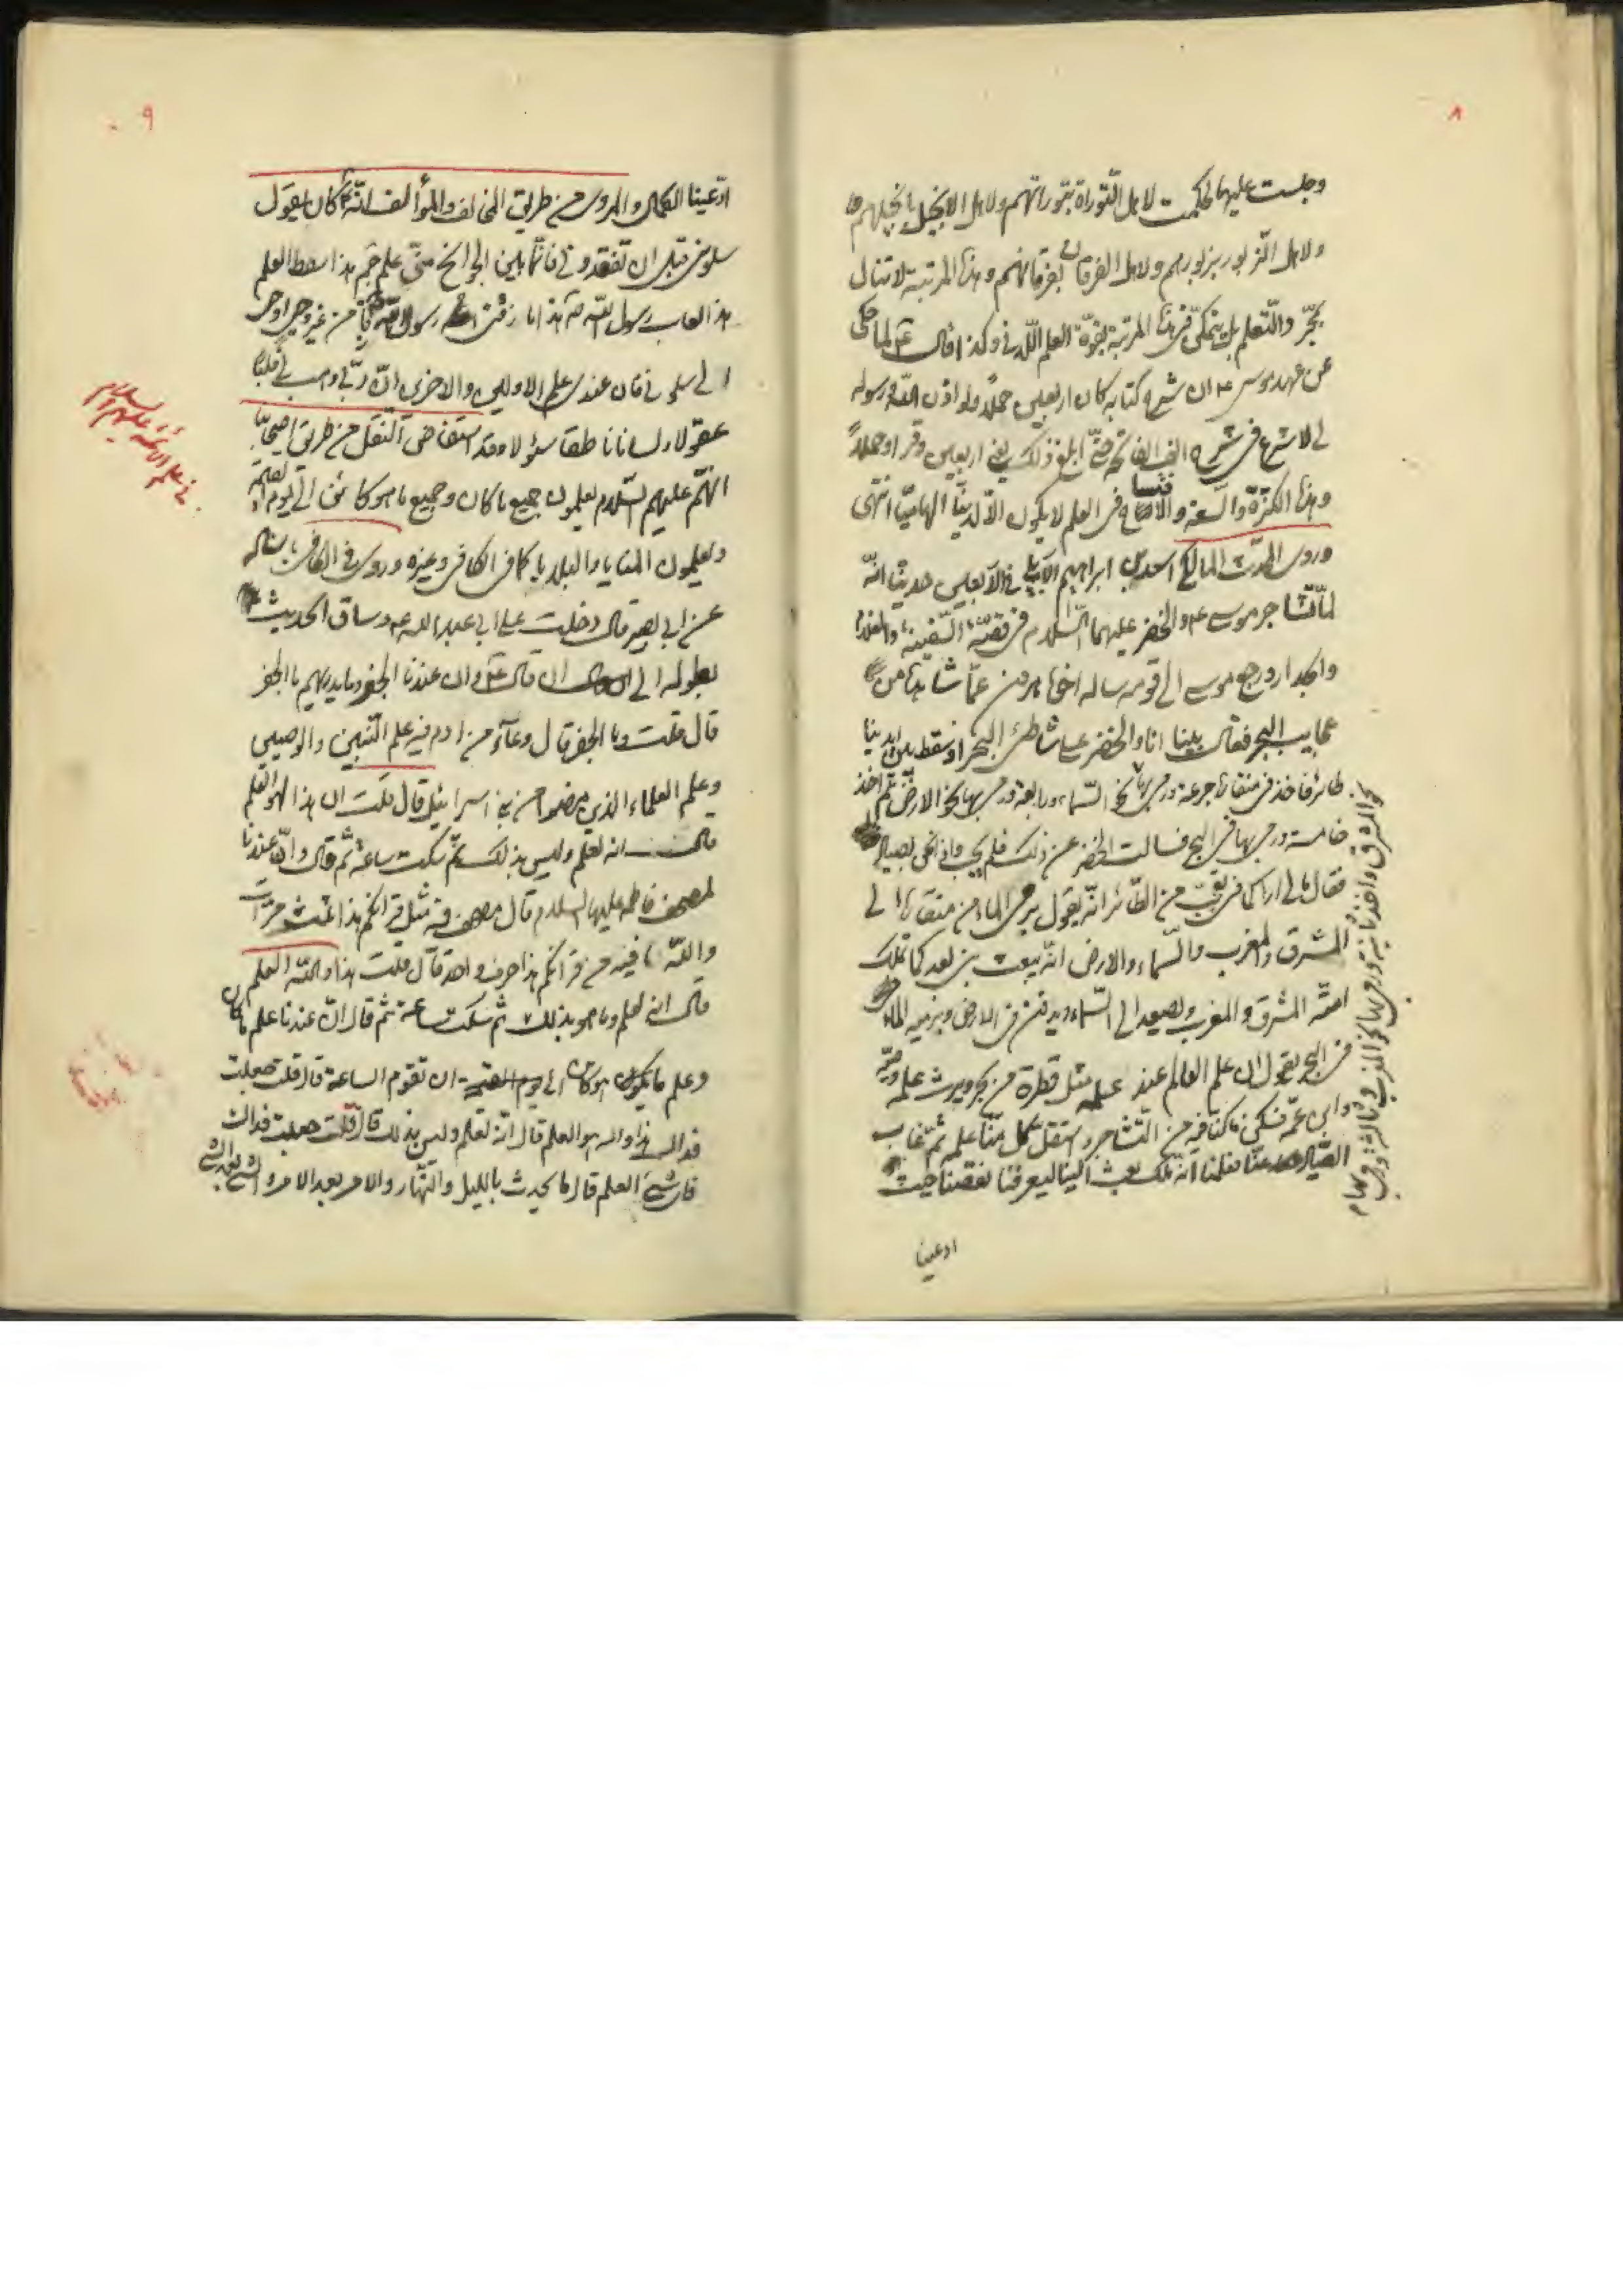 ٨
وجلست عليها لحكمت لاهل التّوراة بتوراتهم ولاهل الانجيل بانجيلهم
ولاهل الزبور بزبورهم ولاهل الفرقان بفرقانهم وهذه المرتبة لا تنال
بمجرّد التّعلم بل يتمكّن في هذه المرتبة بقوّة العلم اللّدني وكذا قال ع لما حكى
عن عهد موسى ع ان شرح كتابه كان اربعين حملاً ولو اذن الله ورسوله
لي لاشرع في شرح الف الفاتحة حتّى ابلغ ذلك يعني اربعين وقرا او حملاً
وهذه الكثرة والسعة والافتتاح في العلم لا يكون الّا لدنيّا الهاميّا انتهى
وروى المالكي اسعد بن ابراهيم في الاربعين حديثا انّه
لمّا تشاجر موسى ع والخضر عليهما السّلام في قصّة السّفينة والغلام
والجدار ورجع موسى الى قومه ساله اخاه هرون عمّا شاهد من
عجايب البحر فقال بينا انا والخضر على شاطئ البحر اذ سقط بين ايدينا
طائر فاخذ في منقاره جرعة ورمى بها نحو السّماء ورابعة ورمى بها نحو الارض ثم اخذ
خامسة ورمى بها في البحر فسالت الخضر عن ذلك فلم يجب واذا نحن بصياد
فقال مالي اراكما في تعجّب من الطّائر انّه يقول يرمي الماء من منقاره الى
المشرق والمغرب والسّماء والارض انّه يبعث نبي بعدكما تملك
امته المشرق والمغرب ويصعد الى السّماء ويدفن في الارض ورميه الماء
في البحر يقول ان علم العالم عند علمه مثل قطرة من بحر ويورث علمه وصيّه
وابن عمّه فسكن ما كنّا فيه من التّشاجر واستقل كل منّا علمه ثمّ غاب
الصّياد عنّا فعلمنا انّه ملك بعث الينا ليعرفنا نقصنا حيث
ادعينا
٩
ادّعينا الكمال والمروى من طريق المخالف والمؤالف انّه كان يقول
سلوني قبل ان تفقدوني فانّما بين الجوانح منّي علم جم هذا سفط العلم
هذا لعاب رسول الله ص هذا ما زقني رسول الله زقّا من غير وحي اوحى
الي سلوني فان عندي علم الاولين والاخرين انّ ربّي وهب لي قلبًا
عقولا ولسانا ناطقا سؤولا وقد استفاض النّقل من طريق اصحابنا
انهم عليهم السّلام يعلمون جميع ما كان وجميع ما هو كائن الى يوم القيمة
ويعلمون المنايا والبلايا كما في الكافي وغيره وروى في الكافي باسناده
عن ابي بصير قال دخلت على ابي عبد الله ع وساق الحديث
بطوله الى ان قال ع وان عندنا الجفر وما يدريهم ما الجفر
قال قلت وما الجفر قال وعآء من ادم فيه علم النّبيين والوصيين
وعلم العلماء الذين مضوا من بني اسرائيل قال قلت ان هذا لهو العلم
قال انه لعلم وليس بذلك ثمّ سكت ساعة ثم قال وانّ عندنا
لمصحف فاطمة عليها السلام قال مصحف فيه مثل قرانكم هذا ثلث مرّات
والله ما فيه من قرانكم هذا حرف واحد قال قلت هذا والله العلم
قال انه لعلم وما هو بذلك ثم سكت ساعة ثم قال انّ عندنا علم ما كان
وعلم ما يكون هو كائن الى ان تقوم الساعة قال قلت جعلت
فداك هذا والله هو العلم قال انّه لعلم وليس بذلك قال قلت جعلت فداك
فاي شيء العلم قال ما يحدث بالليل والنّهار والامر بعد الامر والشيء بعد الشيء